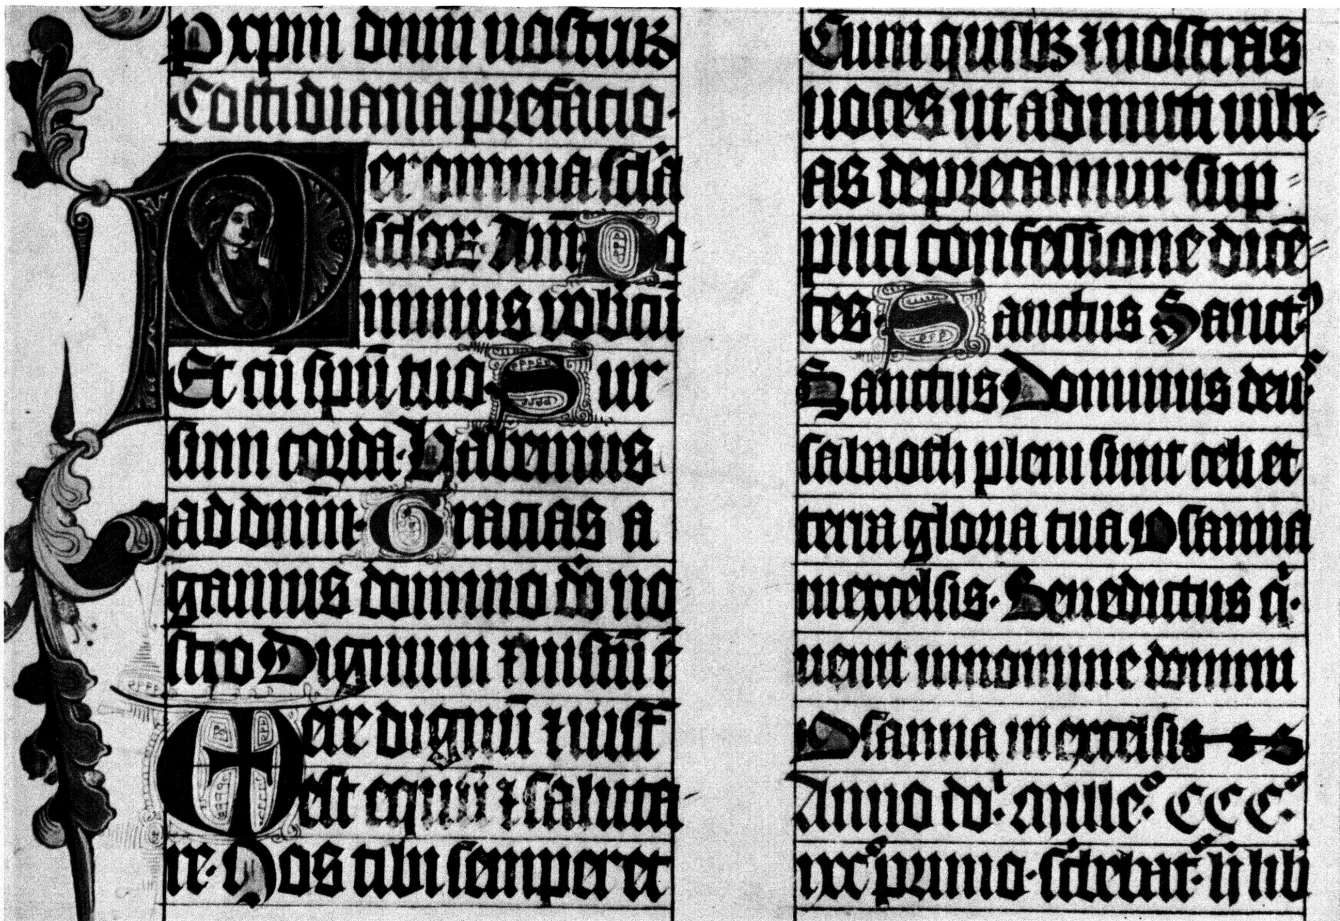 P xpm dnm nostrum
Cottidiana prefacio·
Per omnia scla
sclor Amen Do
minus vobcu
Et cu spu tuo· Sur
sum corda· Habemus
ad dnm· Gracias a
gamus domino do no
stro Dignum ⁊ iustu e
Vere dignu ⁊ iust
est equu ⁊ saluta
re· Nos tibi semper et
Cum quibus ⁊ nostras
uoces ut admitti iube
as deprecamur sup
plici confessione dice
tes· Sanctus Sanct
Sanctus· Dominus deus
sabaoth pleni sunt celi et
terra gloria tua Osanna
in excelsis· Benedictus q
uenit in nomine domini
Osanna in excelsis
Anno do· Mille· CCC·
primo· screbat· lib